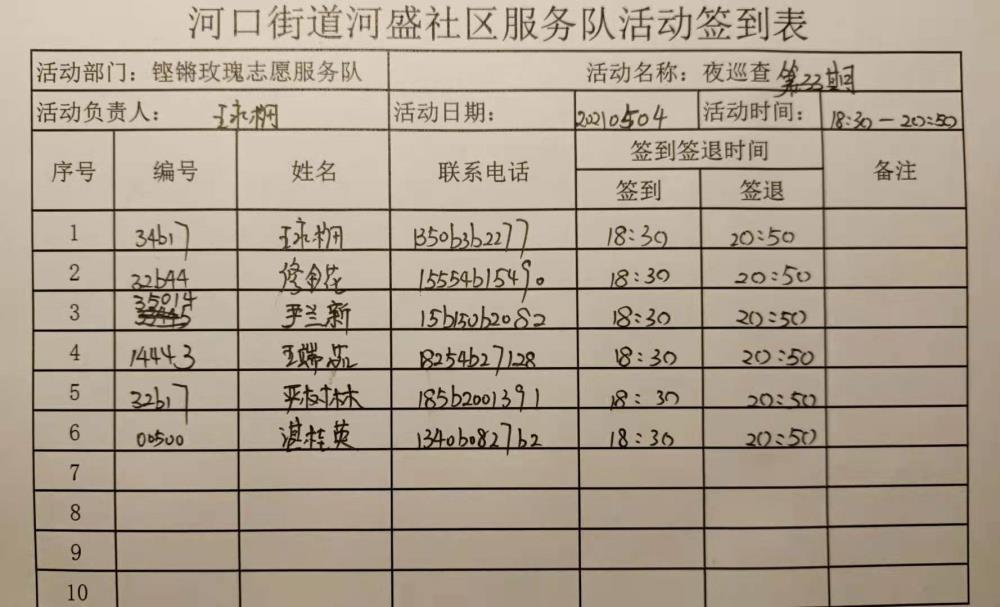 河口街道河盛社区服务队活动签到表
活动部门：铿锵玫瑰志愿服务队 活动名称：夜巡查 第33期
活动负责人： 活动日期： 20210504 活动时间： 18:30-20:50
序号 编号 姓名 联系电话 签到签退时间 备注
签到 签退
1 34617 13506362277 18:30 20:50
2 32644 修金花 15554615490 18:30 20:50
3 35014 尹兰新 15615062082 18:30 20:50
4 14443 王端芯 18254627128 18:30 20:50
5 32617 18562001391 18:30 20:50
6 00500 湛桂英 13406082762 18:30 20:50
7
8
9
10